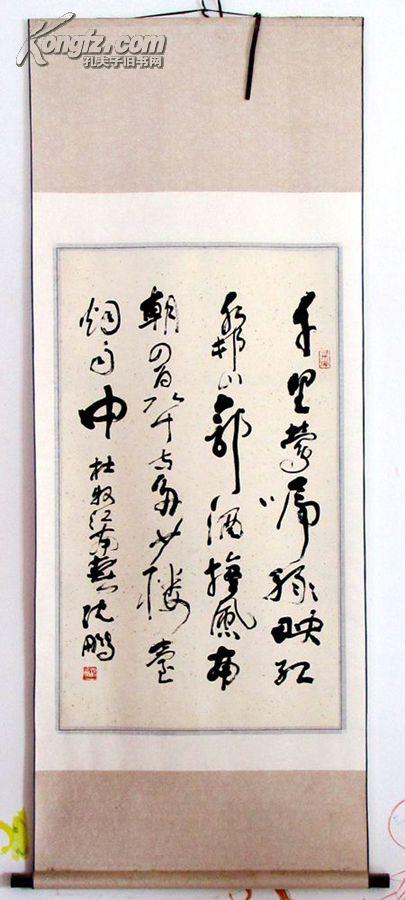 Kongfz.com
孔夫子旧书网
千里鶯啼绿映红
水邨山郭酒旗風南
朝四百八十寺多少楼臺
烟雨中
杜牧江南春 沈鹏